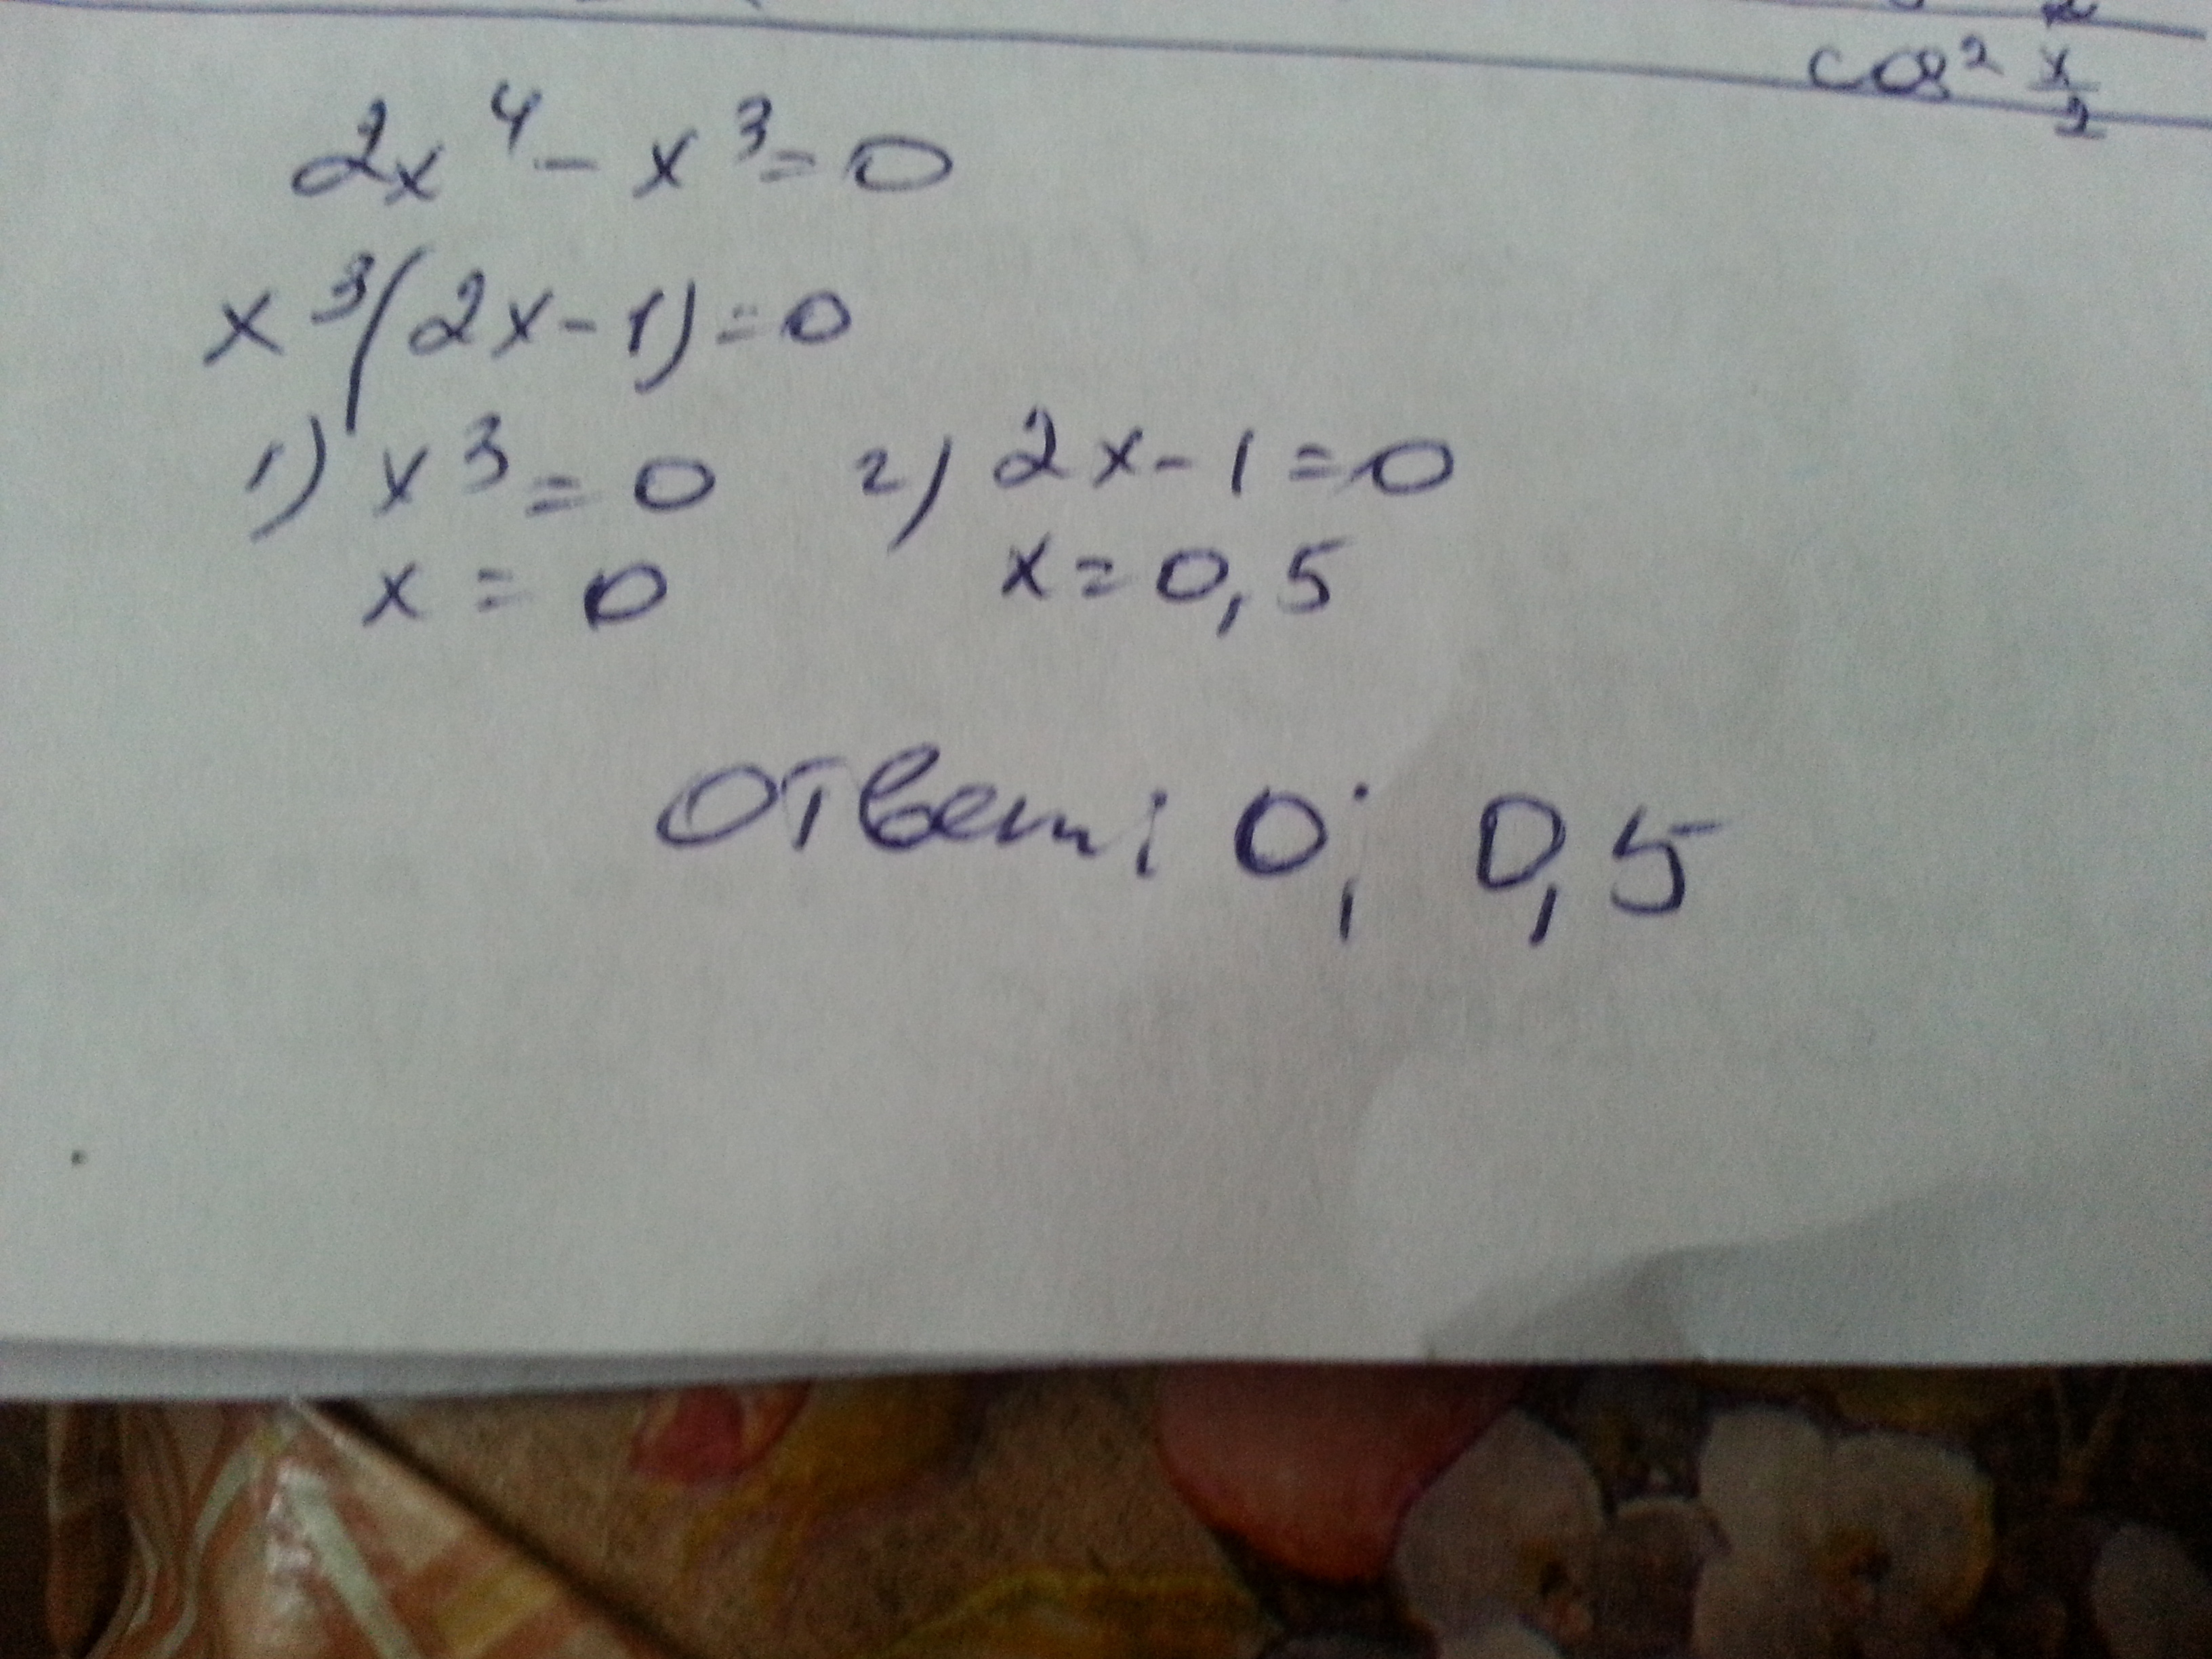 cos² x/2
2x⁴ - x³ = 0
x³(2x - 1) = 0
1) x³ = 0 2) 2x - 1 = 0
x = 0 x = 0,5
Ответ: 0; 0,5